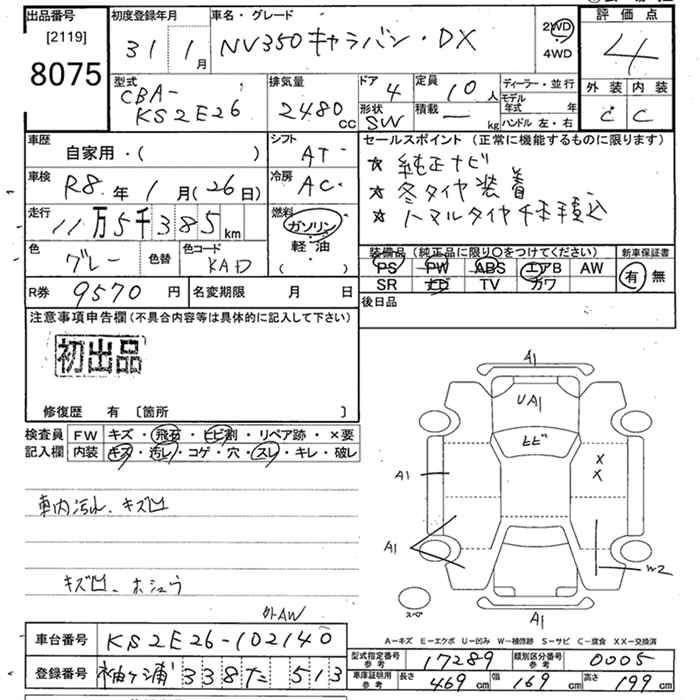 出品番号
[2119]
8075
初度登録年月
31 1月
車名・グレード
NV350キャラバン・DX
2WD
4WD
評価点
4
外装 内装
C C
型式
CBA-
KS2E26
排気量
2480cc
ドア
4
形状
SW
定員
10人
積載
ー kg
ディーラー・並行
モデル年式 年
ハンドル 左・右
車歴
自家用・( )
シフト
AT
セールスポイント (正常に機能するものに限ります)
★ 純正ナビ
★ 冬タイヤ装着
★ ノーマルタイヤ4本積込
車検
R8年 1月(26日)
冷房
AC
走行
11万5千385km
燃料
ガソリン
軽・油
( )
色
グレー
色替
色コード
KAD
装備品 (純正品に限り○をつけてください)
PS PW ABS エアB AW
SR TV カワ
新車保証書
有 無
R券 9570円
名変期限 月 日
後日品
注意事項申告欄 (不具合内容等は具体的に記入して下さい)
初出品
修復歴 有 〔箇所 〕
検査員
記入欄
FW キズ・飛石・ヒビ割・リペア跡・×要
内装 キズ・汚レ・コゲ・穴・スレ・キレ・破レ
A1
UA1
ヒビ
A1
XX
A1
W2
A1
スペ
車内汚れ、キズ凹
キズ凹、ホシュウ
外AW
A-キズ E-エクボ U-凹み W-補修跡 S-サビ C-腐食 XX-交換済
車台番号 KS2E26-102140
登録番号 袖ヶ浦 338 た 513
型式指定番号
参考
17289
類別区分番号
参考
0005
車庫証明用
参考
長さ 469cm
幅 169cm
高さ 199cm